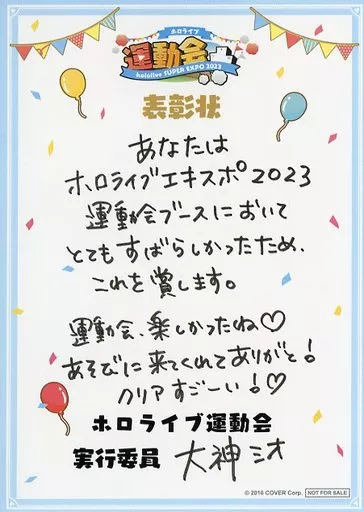 ホロライブ
運動会
hololive SUPER EXPO 2023
表彰状
あなたは
ホロライブエキスポ2023
運動会ブースにおいて
とてもすばらしかったため、
これを賞します。
運動会、楽しかったね♡
あそびに来てくれてありがと!
クリアすごーい!♡
ホロライブ運動会
実行委員 大神ミオ
© 2016 COVER Corp. NOT FOR SALE